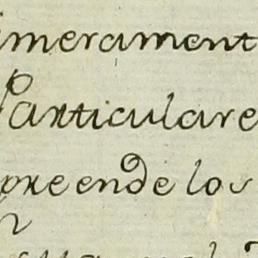 imerament
Particulare
preende los